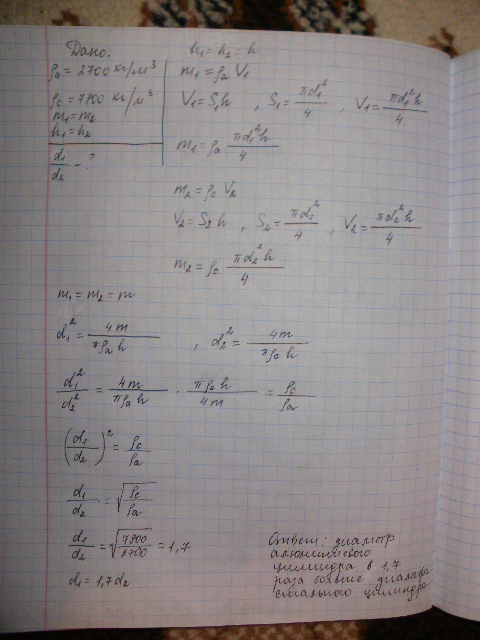 Дано:
ρa = 2700 кг/м³
ρc = 7800 кг/м³
m₁ = m₂
h₁ = h₂
d₁/d₂ - ?
h₁ = h₂ = h
m₁ = ρa V₁
V₁ = S₁h , S₁ = πd₁²/4 , V₁ = πd₁²h/4
m₁ = ρa πd₁²h/4
m₂ = ρc V₂
V₂ = S₂ h , S₂ = πd₂²/4 , V₂ = πd₂²h/4
m₂ = ρc πd₂²h/4
m₁ = m₂ = m
d₁² = 4m/πρa h , d₂² = 4m/πρc h
d₁²/d₂² = 4m/πρa h · πρc h/4m = ρc/ρa
(d₁/d₂)² = ρc/ρa
d₁/d₂ = √ρc/ρa
d₁/d₂ = √7800/2700 = 1,7
d₁ = 1,7 d₂
Ответ: диаметр
алюминиевого
цилиндра в 1,7
раза больше диаметра
стального цилиндра